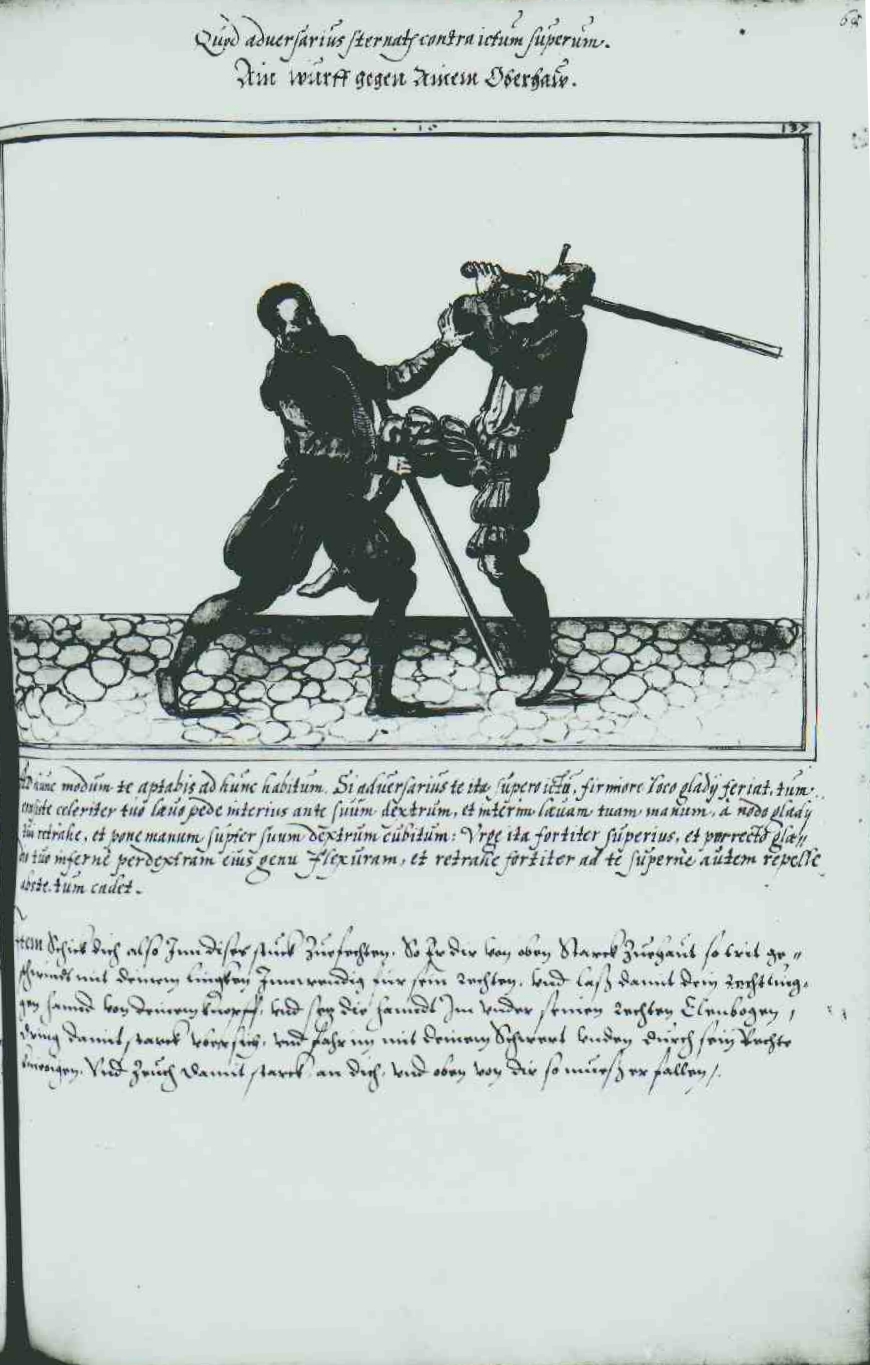 68
Quod adversarius sternatur contra ictum superum.
Ain wurff gegen Ainem Oberhaw.
137
Ad hunc modum te aptabis ad hunc habitum. Si adversarius te ita supero ictu, firmiore loco gladij feriat, tum
celeriter tuo laevo pede interius ante suum dextrum, et interim laevam tuam manum, a nodo gladij
tui retrahe, et pone manum super suum dextrum cubitum: Urge ita fortiter superius, et porrecto gla=
dio tuo inferne per dextram eius genu flexuram, et retrahe fortiter ad te superne autem repelle
abs te, tum cadet.
Item Schick dich also Inn diser stuck zuefechten. So Er dir von oben Starck Zuehaut so trit ge=
schwindt mit deinem lingken Innwendig fur sein rechten, und lass damit dein ling=
gen hannd von deinem knopff, und setz die hanndt Im under seinen rechten Elenbogen,
dring damit starck ubersich, und fahr im mit deinem Schwert unden durch sein Rechte
kniebigen, Und zeuch damit starck an dich, und oben von dir so muess er fallen.